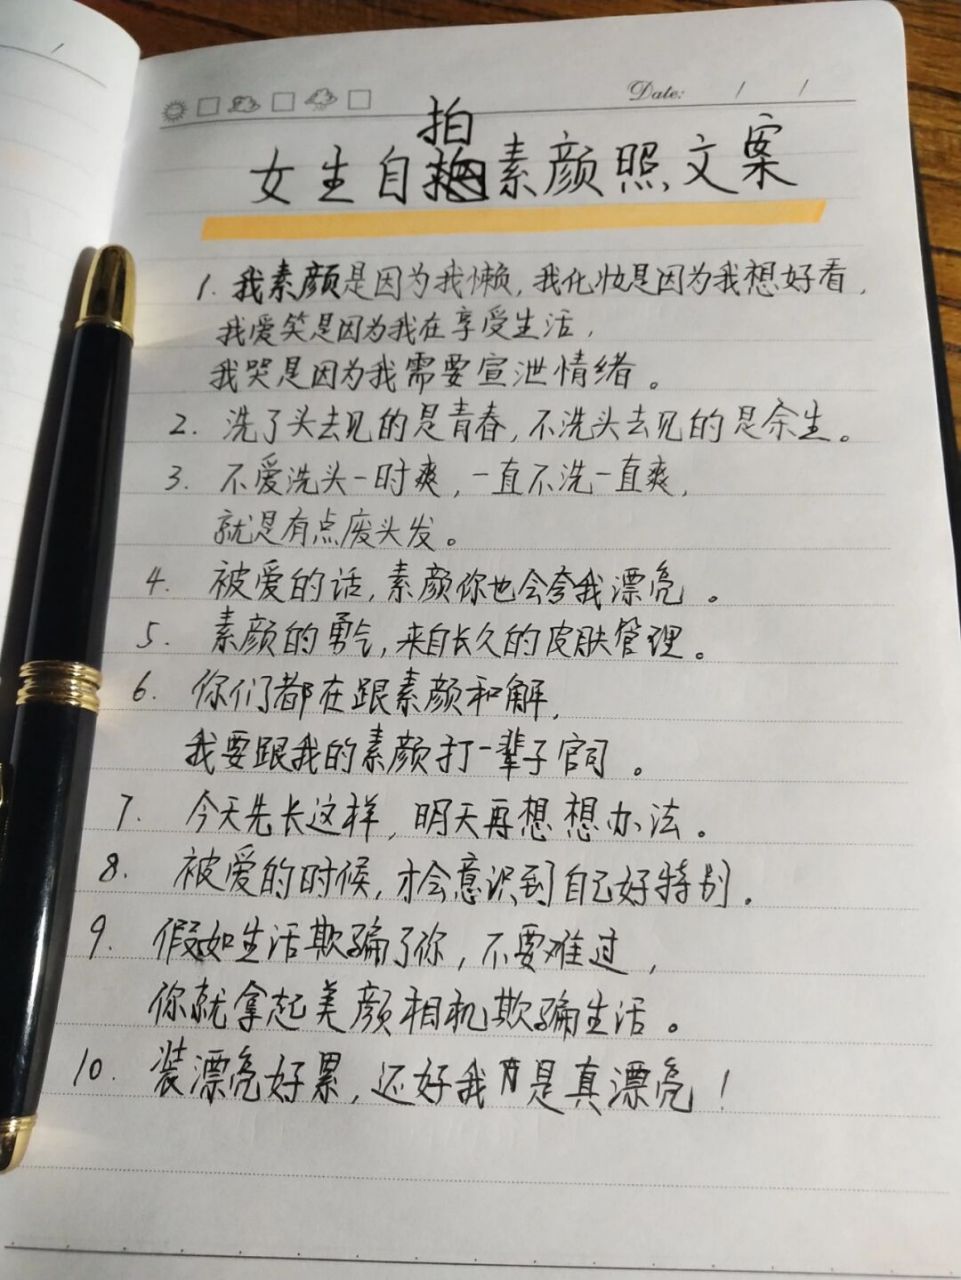 Date: / /
拍
女生自素颜照文案
1. 我素颜是因为我懒,我化妆是因为我想好看,
我爱笑是因为我在享受生活,
我哭是因为我需要宣泄情绪。
2. 洗了头去见的是青春,不洗头去见的是余生。
3. 不爱洗头一时爽,一直不洗一直爽,
就是有点废头发。
4. 被爱的话,素颜你也会夸我漂亮。
5. 素颜的勇气,来自长久的皮肤管理。
6. 你们都在跟素颜和解,
我要跟我的素颜打一辈子官司。
7. 今天先长这样,明天再想想办法。
8. 被爱的时候,才会意识到自己好特别。
9. 假如生活欺骗了你,不要难过,
你就拿起美颜相机欺骗生活。
10. 装漂亮好累,还好我是真漂亮!